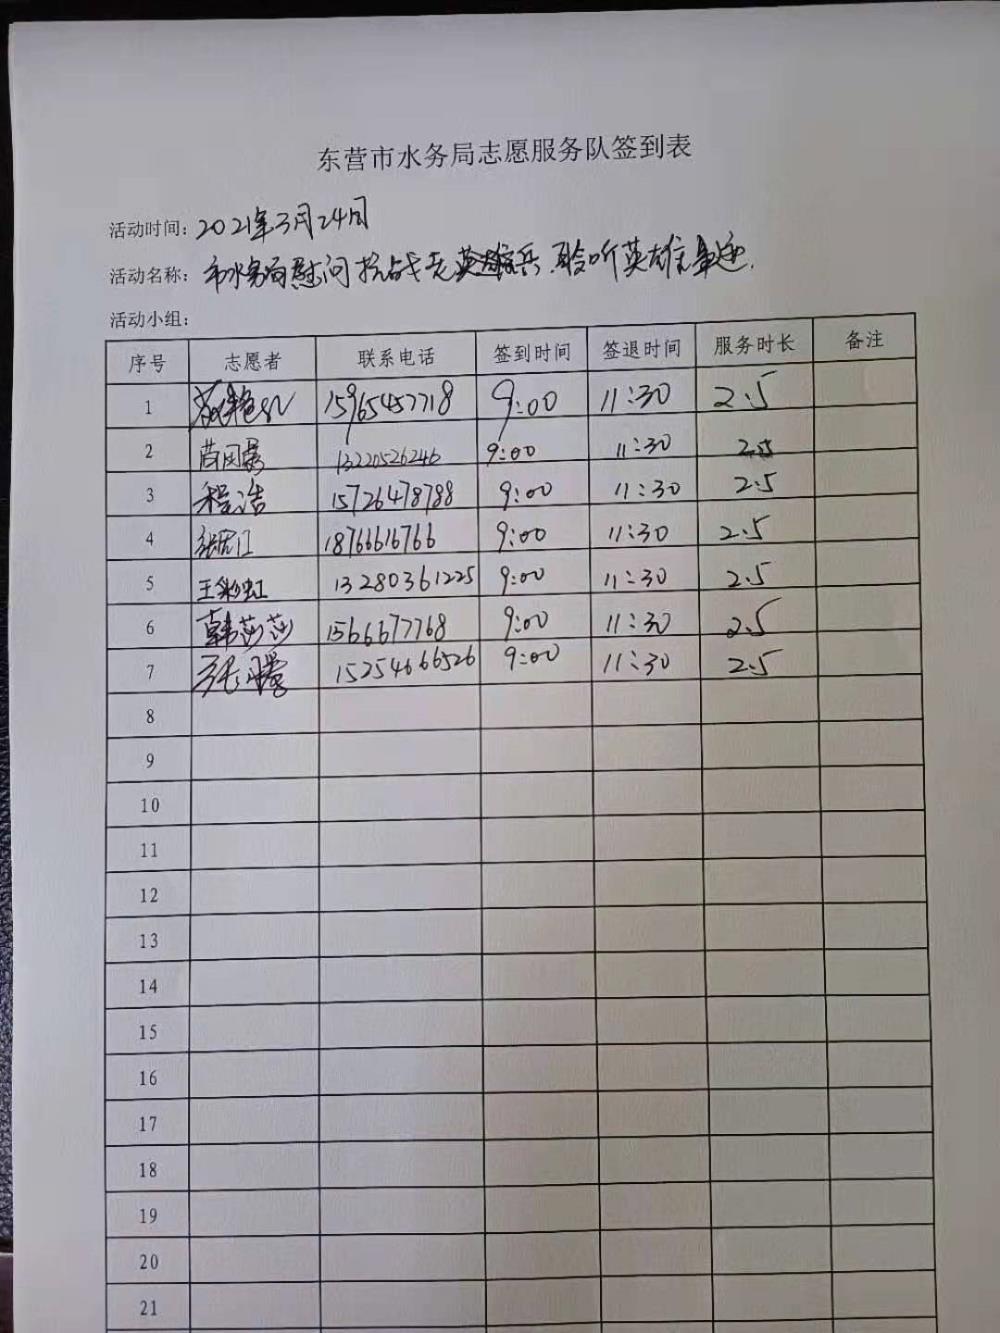 东营市水务局志愿服务队签到表
活动时间：2021年3月24日
活动名称：市水务局慰问抗战老兵 聆听英雄事迹.
活动小组：
序号 志愿者 联系电话 签到时间 签退时间 服务时长 备注
1 15965457718 9:00 11:30 2.5
2 13220526246 9:00 11:30 2.5
3 程浩 15726478788 9:00 11:30 2.5
4 18766616766 9:00 11:30 2.5
5 王彩虹 13280361225 9:00 11:30 2.5
6 韩莎莎 15666677768 9:00 11:30 2.5
7 15254666526 9:00 11:30 2.5
8
9
10
11
12
13
14
15
16
17
18
19
20
21